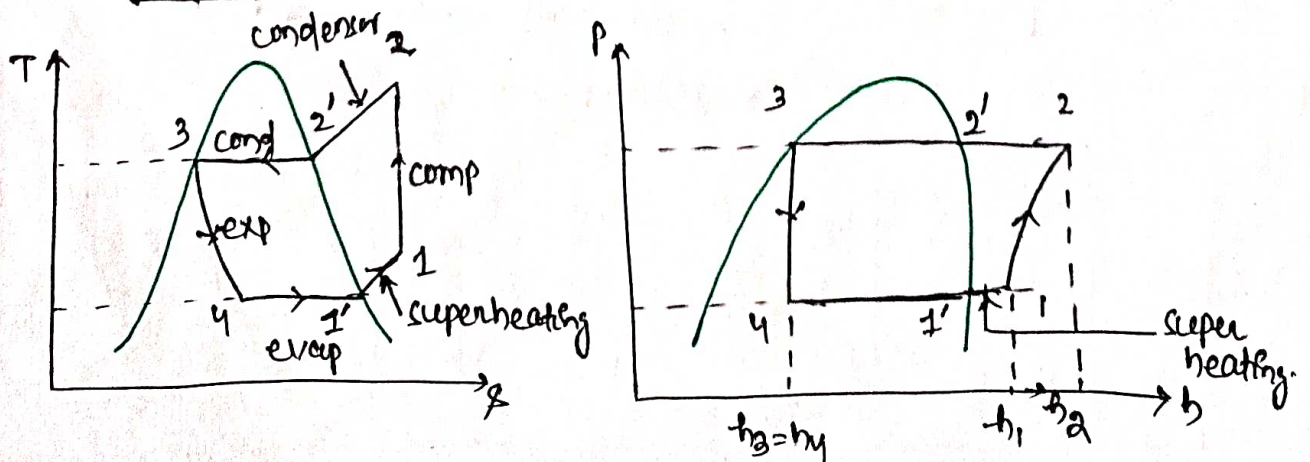 condenser 2
T
3
cond
2'
comp
exp
1
4
1'
superheating
evap
s
P
3
2'
2
4
1'
1
super
heating.
h
h3=h4
h1
h2